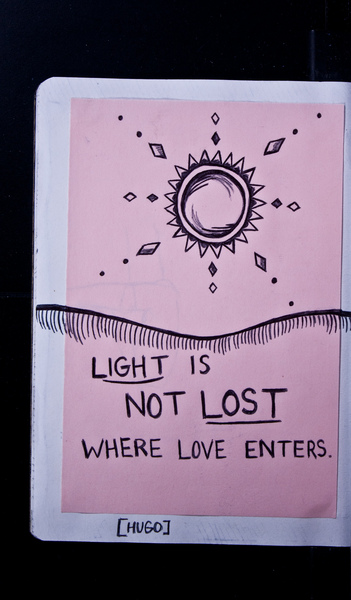 LIGHT IS
NOT LOST
WHERE LOVE ENTERS.
[HUGO]